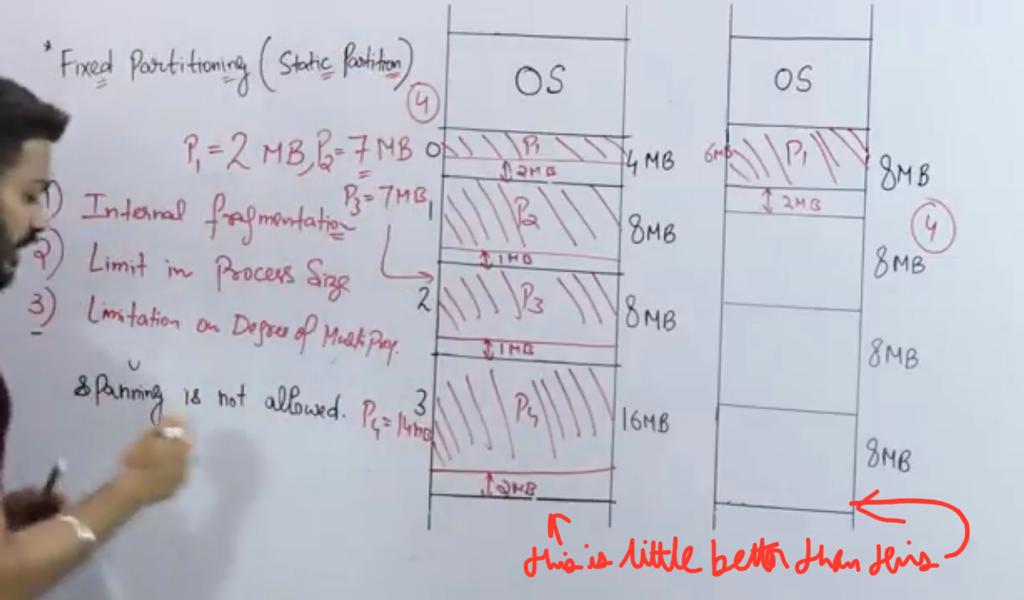 * Fixed Partitioning (Static Partition)
4
P1 = 2 MB, P2 = 7 MB
P3 = 7MB
1) Internal fragmentation
2) Limit in Process Size
3) Limitation on Degree of MultiProg.
Spanning is not allowed.
P4 = 14MB
OS
0 P1 4 MB
2MB
1 P2 8MB
1MB
2 P3 8MB
1MB
3 P4 16MB
2MB
OS
6MB P1 8MB
2MB
4
8MB
8MB
8MB
this is little better than this